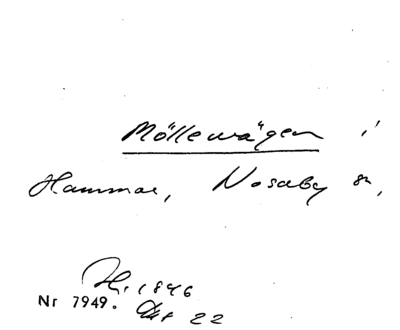 Möllevägen i
Hammar, Nosaby sn,
Hr. 1846
Nr 7949. Akt 22